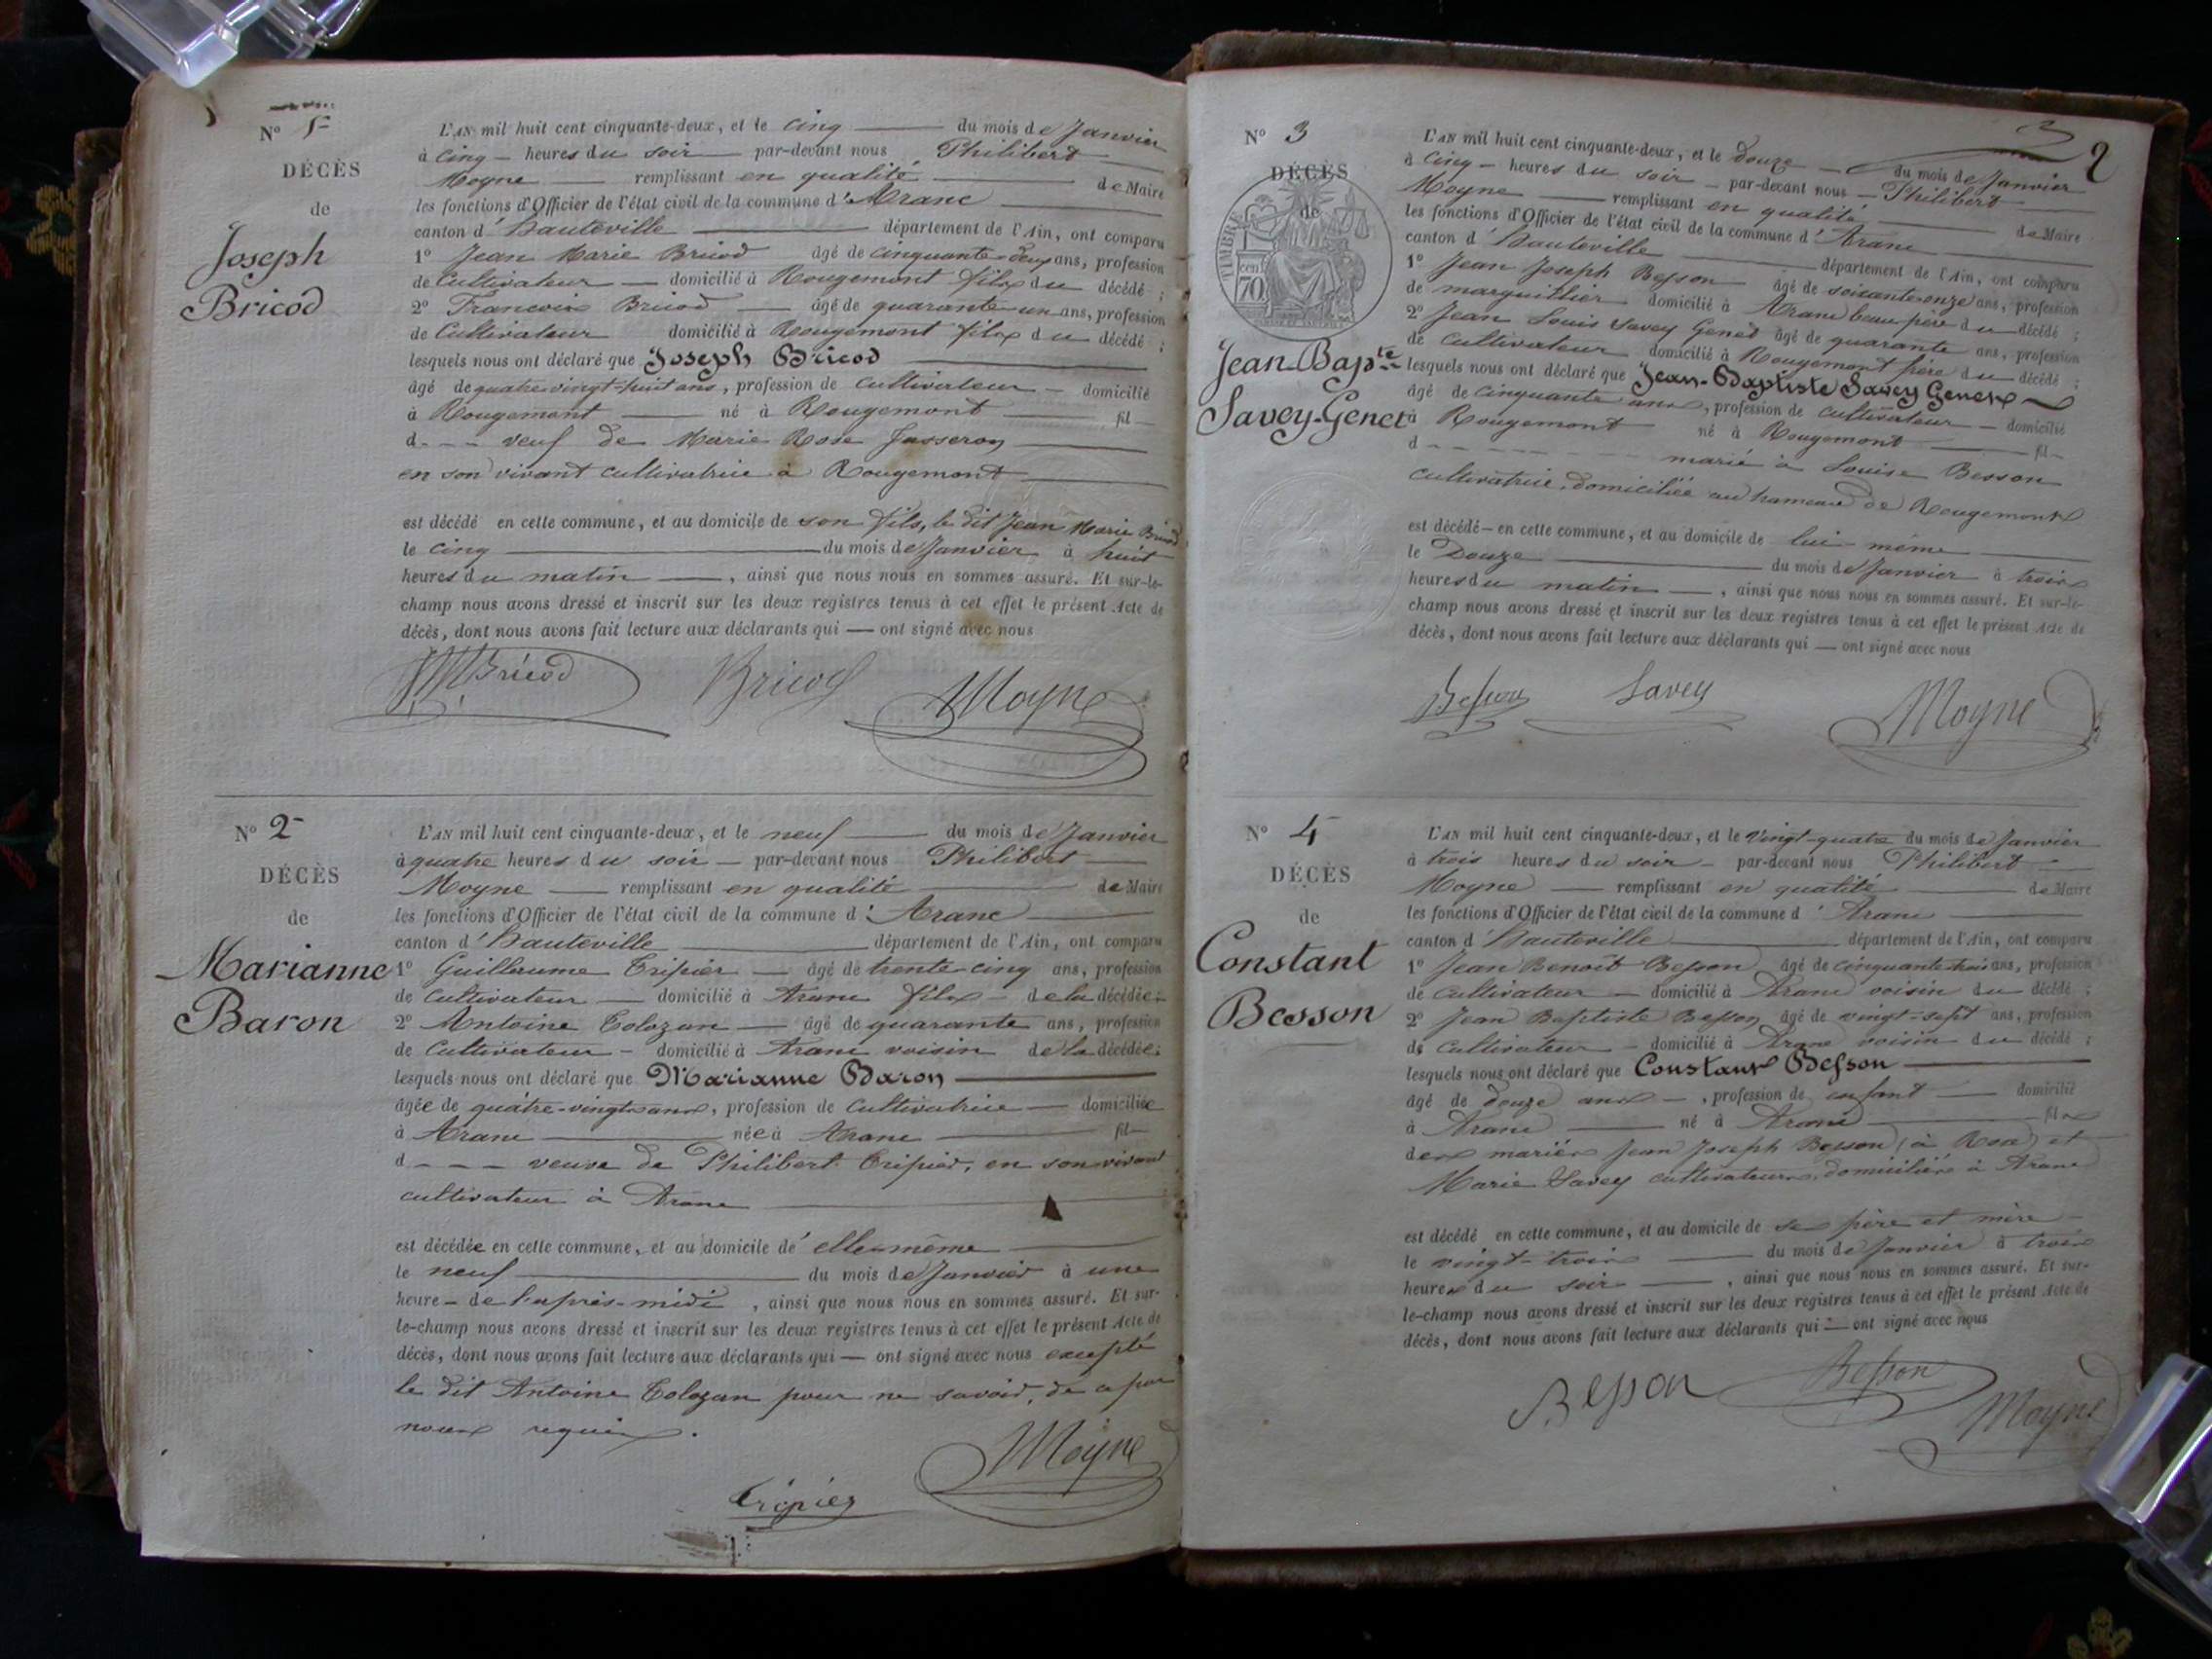 N° 1er
DÉCÈS
de
Joseph
Bricod
L'AN mil huit cent cinquante-deux, et le cinq du mois de Janvier
à cinq heures du soir par-devant nous Philibert
Moyne remplissant en qualité de Maire
les fonctions d'Officier de l'état civil de la commune d'Aranc
canton d'hauteville département de l'Ain, ont comparu
1° Jean Marie Bricod âgé de cinquante-deux ans, profession
de Cultivateur domicilié à Rougemont fils du décédé ;
2° Francois Bricod âgé de quarante-un ans, profession
de Cultivateur domicilié à Rougemont fils du décédé ;
lesquels nous ont déclaré que Joseph Bricod
âgé de quatre-vingt-huit ans, profession de cultivateur domicilié
à Rougemont né à Rougemont fil
d veuf de Marie Rose Jasseron
en son vivant cultivatrice à Rougemont
est décédé en cette commune, et au domicile de son fils, le dit Jean Marie Bricod
le cinq du mois de Janvier à huit
heures du matin, ainsi que nous nous en sommes assuré. Et sur-le-
champ nous avons dressé et inscrit sur les deux registres tenus à cet effet le présent Acte de
décès, dont nous avons fait lecture aux déclarants qui — ont signé avec nous
JM Bricod Bricod Moyne
N° 2
DÉCÈS
de
Marianne
Baron
L'AN mil huit cent cinquante-deux, et le neuf du mois de Janvier
à quatre heures du soir par-devant nous Philibert
Moyne remplissant en qualité de Maire
les fonctions d'Officier de l'état civil de la commune d'Aranc
canton d'hauteville département de l'Ain, ont comparu
1° Guillaume Tripier âgé de trente-cinq ans, profession
de cultivateur domicilié à Aranc fils de la décédée ;
2° Antoine Tolozan âgé de quarante ans, profession
de Cultivateur domicilié à Aranc voisin de la décédée ;
lesquels nous ont déclaré que Marianne Baron
âgée de quatre-vingts ans, profession de Cultivatrice domiciliée
à Aranc née à Aranc fil
d veuve de Philibert Tripier, en son vivant
cultivateur à Aranc
est décédée en cette commune, et au domicile de elle-même
le neuf du mois de Janvier à une
heure de l'après-midi, ainsi que nous nous en sommes assuré. Et sur-
le-champ nous avons dressé et inscrit sur les deux registres tenus à cet effet le présent Acte de
décès, dont nous avons fait lecture aux déclarants qui — ont signé avec nous excepté
le dit Antoine Tolozan pour ne savoir, de ce par
nous requis.
Tripier Moyne
2
N° 3
DÉCÈS
de
TIMBRE
cent
70
Jean Bapte
Savey-Genet
L'AN mil huit cent cinquante-deux, et le douze du mois de Janvier
à cinq heures du soir par-devant nous Philibert
Moyne remplissant en qualité de Maire
les fonctions d'Officier de l'état civil de la commune d'Aranc
canton d'hauteville département de l'Ain, ont comparu
1° Jean Joseph Besson âgé de soixante-onze ans, profession
de marguillier domicilié à Aranc beau-père du décédé ;
2° Jean Louis Savey Genet âgé de quarante ans, profession
de cultivateur domicilié à Rougemont frère du décédé ;
lesquels nous ont déclaré que Jean-Baptiste Savey Genet
âgé de cinquante ans, profession de cultivateur domicilié
à Rougemont né à Rougemont fil
d marié à Louise Besson
cultivatrice, domiciliée au hameau de Rougemont
est décédé en cette commune, et au domicile de lui-même
le Douze du mois de Janvier à trois
heures du matin, ainsi que nous nous en sommes assuré. Et sur-le-
champ nous avons dressé et inscrit sur les deux registres tenus à cet effet le présent Acte de
décès, dont nous avons fait lecture aux déclarants qui — ont signé avec nous
Besson Savey Moyne
N° 4
DÉCÈS
de
Constant
Besson
L'AN mil huit cent cinquante-deux, et le Vingt-quatre du mois de Janvier
à trois heures du soir par-devant nous Philibert
Moyne remplissant en qualité de Maire
les fonctions d'Officier de l'état civil de la commune d'Aranc
canton d'hauteville département de l'Ain, ont comparu
1° Jean Benoît Besson âgé de cinquante-trois ans, profession
de cultivateur domicilié à Aranc voisin du décédé ;
2° Jean Baptiste Besson âgé de vingt-sept ans, profession
de cultivateur domicilié à Aranc voisin du décédé ;
lesquels nous ont déclaré que Constant Besson
âgé de douze ans, profession de enfant domicilié
à Aranc né à Aranc fils
des mariés Jean Joseph Besson (à Roux) et
Marie Savey cultivateurs, domiciliés à Aranc
est décédé en cette commune, et au domicile de ses père et mère
le vingt-trois du mois de Janvier à trois
heures du soir, ainsi que nous nous en sommes assuré. Et sur-
le-champ nous avons dressé et inscrit sur les deux registres tenus à cet effet le présent Acte de
décès, dont nous avons fait lecture aux déclarants qui — ont signé avec nous
Besson Besson Moyne